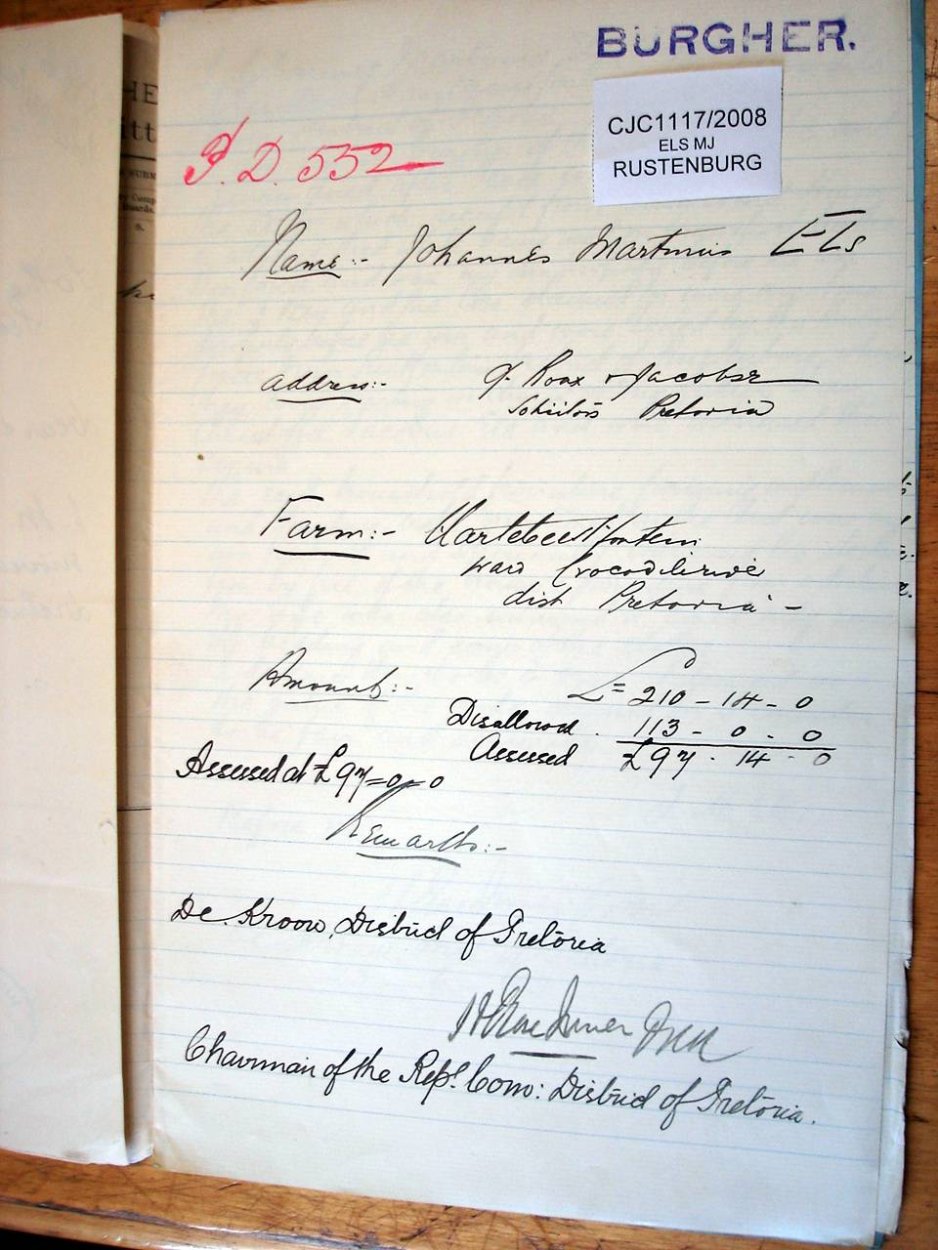 BURGHER.
CJC1117/2008
ELS MJ
RUSTENBURG
P.D. 552
Name:- Johannes Martinus Els
Address:- Roux & Jacobsz
Solicitors Pretoria
Farm:- Hartebeestfontein
ward Crocodilerivier
dist Pretoria -
Amount:- £= 210 - 14 - 0
Disallowed. 113 - 0 - 0
Assessed £97 - 14 - 0
Assessed at £97=0=0
Remarks:-
De Kroon, District of Pretoria
Chairman of the Rep. Com: District of Pretoria.